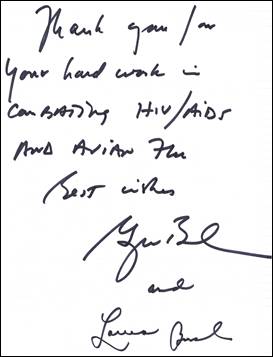 Thank you for
your hard work in
combatting HIV/AIDS
AND AVIAN Flu
Best wishes
George Bush
and
Laura Bush